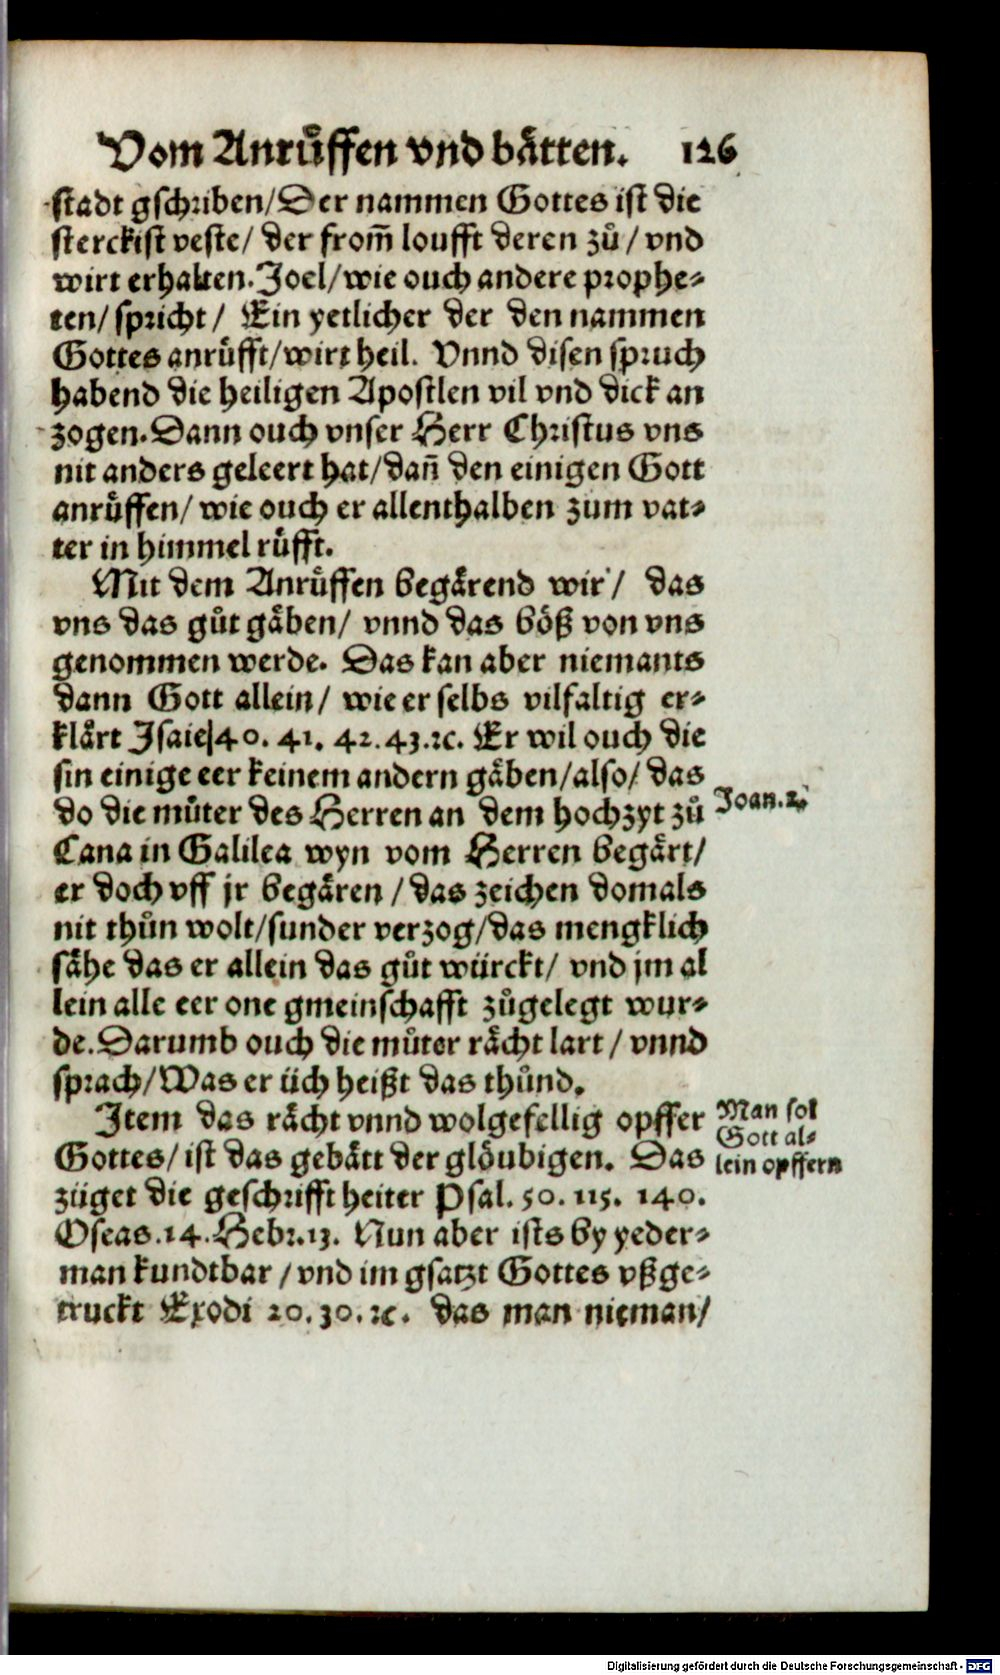 Vom Anruͤffen vnd baͤtten. 126
stadt gschriben/Der nammen Gottes ist die
sterckist veste/ der from̃ loufft deren zů/ vnd
wirt erhalten. Joel/wie ouch andere prophe⸗
ten/ spricht/ Ein yetlicher der den nammen
Gottes anruͤfft/wirt heil. Vnnd disen spruch
habend die heiligen Apostlen vil vnd dick an
zogen. Dann ouch vnser Herr Christus vns
nit anders geleert hat/dañ den einigen Gott
anruͤffen/ wie ouch er allenthalben zum vat⸗
ter in himmel ruͤfft.
Mit dem Anruͤffen begaͤrend wir/ das
vns das gůt gaͤben/ vnnd das boͤß von vns
genommen werde. Das kan aber niemants
dann Gott allein/ wie er selbs vilfaltig er⸗
klaͤrt Isaie 40. 41. 42. 43. ꝛc. Er wil ouch die
sin einige eer keinem andern gaͤben/also/ das
do die můter des Herren an dem hochzyt zů
Joan. 2.
Cana in Galilea wyn vom Herren begaͤrt/
er doch vff jr begaͤren/das zeichen domals
nit thůn wolt/sunder verzog/das mengklich
saͤhe das er allein das gůt würckt/ vnd jm al
lein alle eer one gmeinschafft zůgelegt wur⸗
de. Darumb ouch die můter raͤcht lart/ vnnd
sprach/Was er üch heißt das thůnd.
Item das raͤcht vnnd wolgefellig opffer
Gottes/ ist das gebaͤtt der gloͤubigen. Das
Man sol
Gott al⸗
lein opffern
züget die geschrifft heiter Psal. 50. 115. 140.
Oseas. 14. Hebr. 13. Nun aber ists by yeder⸗
man kundtbar/vnd im gsatzt Gottes vßge⸗
truckt Exodi 20. 30. ꝛc. das man nieman/
Digitalisierung gefördert durch die Deutsche Forschungsgemeinschaft - DFG